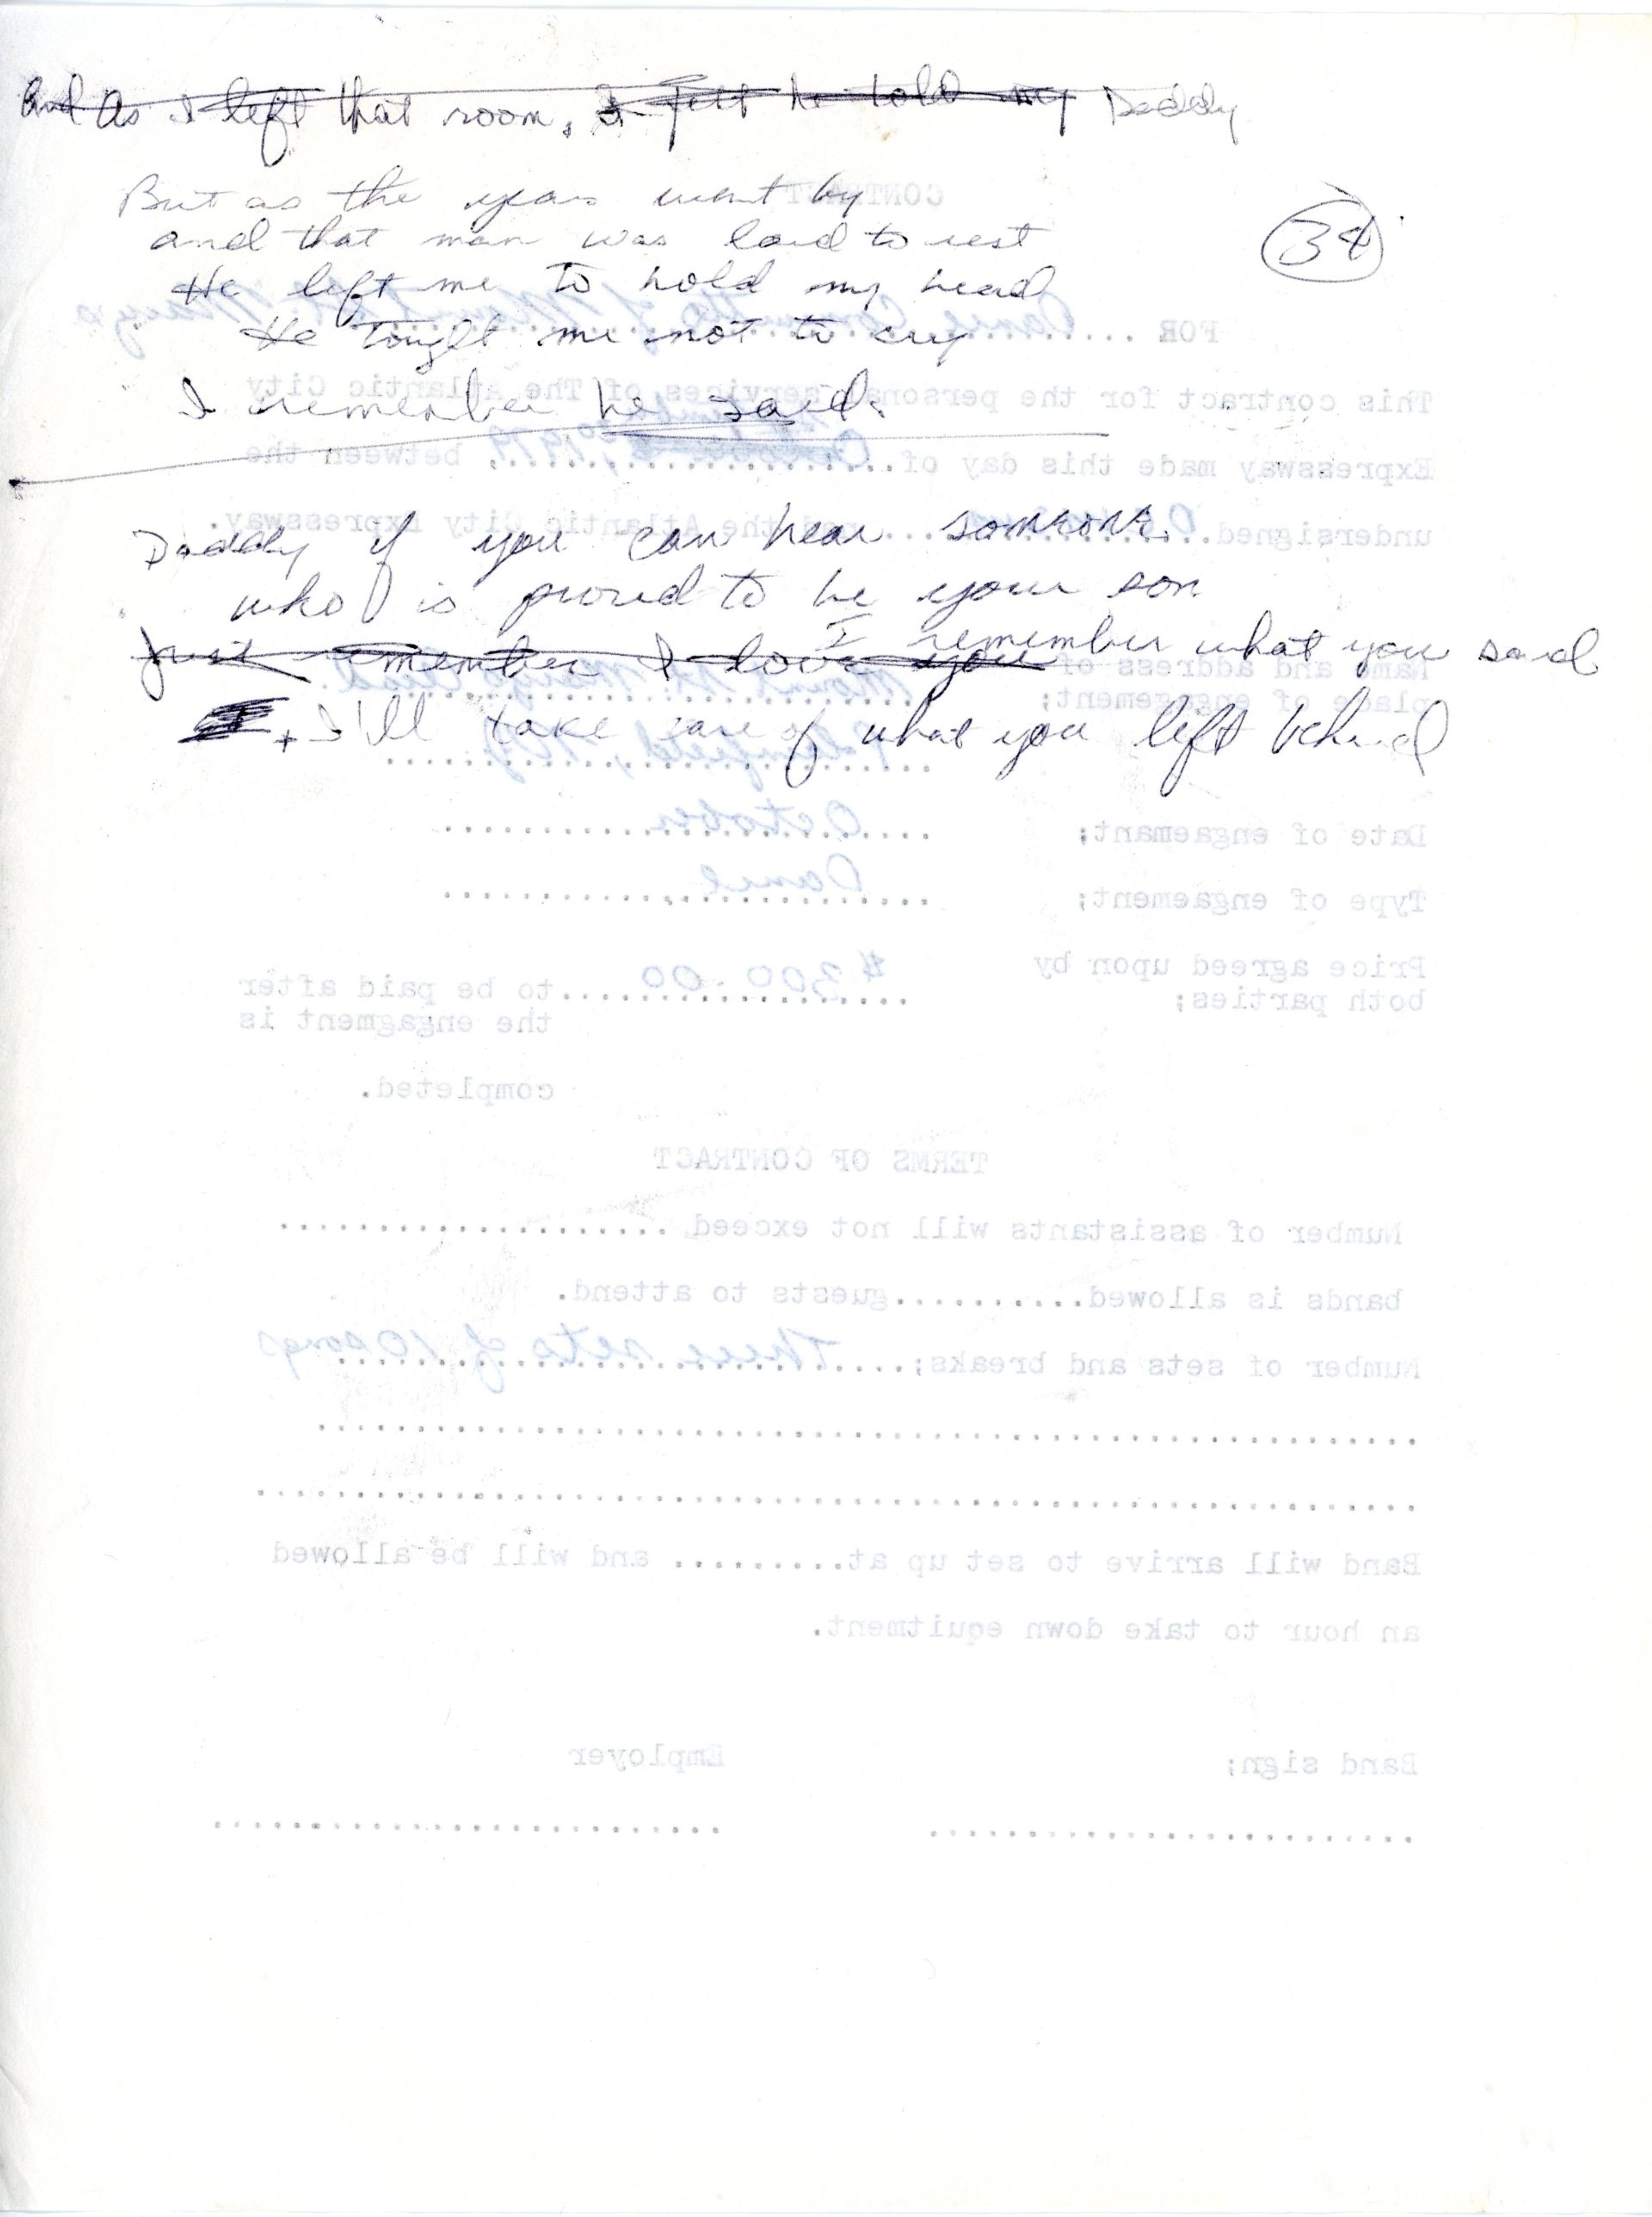 And As I left that room, I felt he told my Daddy
But as the years went by
and that man was laid to rest
34
He left me to hold my head
He tought me not to cry
I remember he said.
Daddy if you can hear someone.
who is proud to be your son
I remember what you said
Just remember I love you
+ I'll take care of what you left behind
CONTRACT
FOR ....Dance Committe of Mount St. Marys
This contract for the personal services of The Atlantic City
Expressway made this day of............, 1979, between the
undersigned............and the Atlantic City Expressway.
Name and address of
place of engagement; Mount St. Marys
Date of engaemant; October
Type of engaement; Dance
Price agreed upon by
both parties; $300.00 to be paid after
the engagment is
completed.
TERMS OF CONTRACT
Number of assistants will not exceed....................
bands is allowed..........guests to attend.
Number of sets and breaks; Three sets of 10 songs
Band will arrive to set up at......... and will be allowed
an hour to take down equitment.
Band sign; Employer